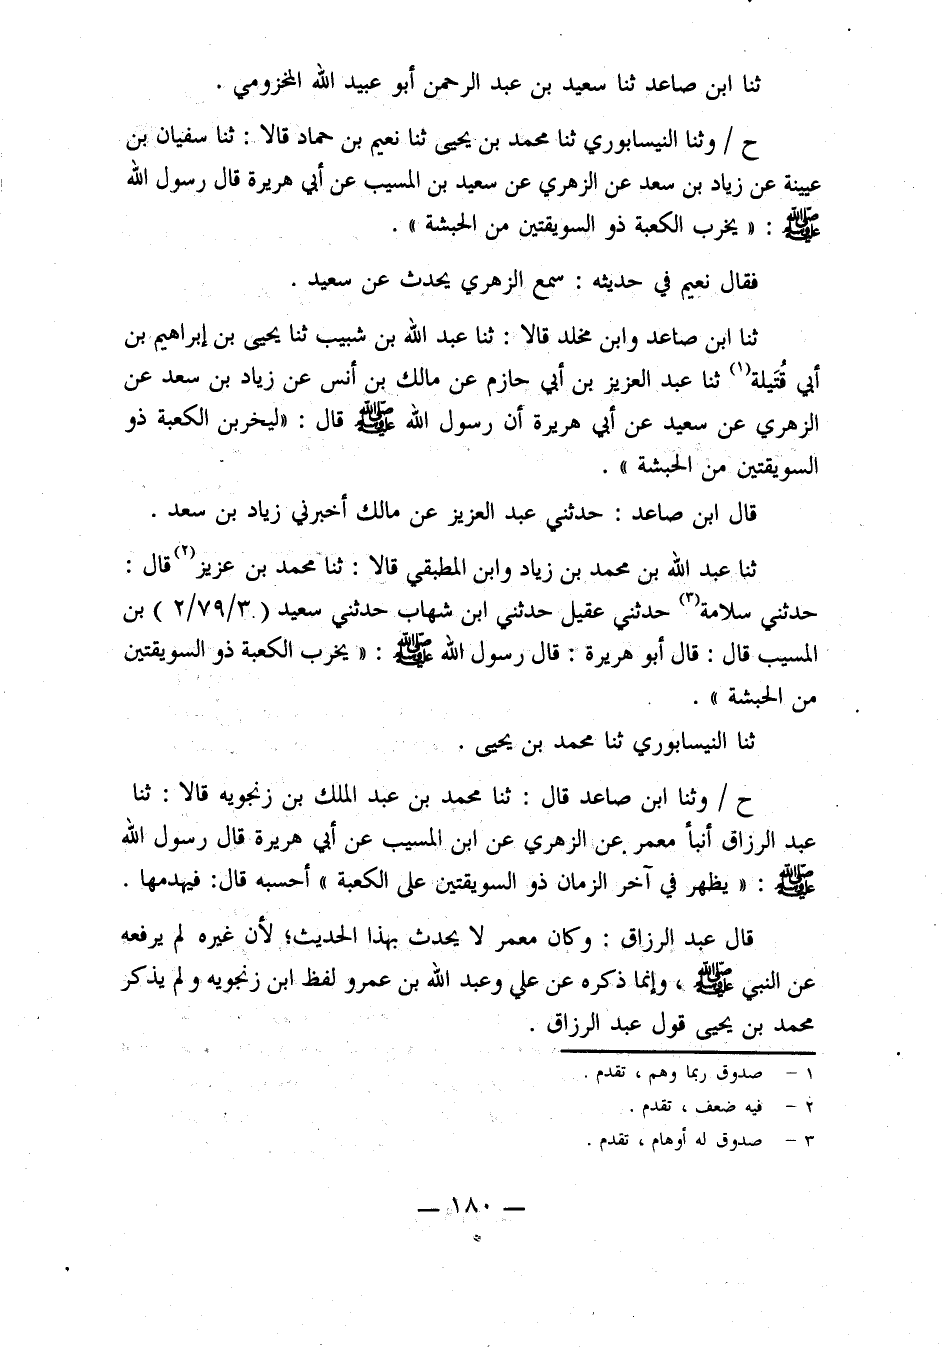 ثنا ابن صاعد ثنا سعيد بن عبد الرحمن أبو عبيد الله المخزومي .
ح / وثنا النيسابوري ثنا محمد بن يحيى ثنا نعيم بن حماد قالا : ثنا سفيان بن
عيينة عن زياد بن سعد عن الزهري عن سعيد بن المسيب عن أبي هريرة قال رسول الله
ﷺ : « يخرب الكعبة ذو السويقتين من الحبشة » .
فقال نعيم في حديثه : سمع الزهري يحدث عن سعيد .
ثنا ابن صاعد وابن مخلد قالا : ثنا عبد الله بن شبيب ثنا يحيى بن إبراهيم بن
أبي قُتَيلة(١) ثنا عبد العزيز بن أبي حازم عن مالك بن أنس عن زياد بن سعد عن
الزهري عن سعيد عن أبي هريرة أن رسول الله ﷺ قال : «ليخربن الكعبة ذو
السويقتين من الحبشة » .
قال ابن صاعد : حدثني عبد العزيز عن مالك أخبرني زياد بن سعد .
ثنا عبد الله بن محمد بن زياد وابن المطبقي قالا : ثنا محمد بن عزيز(٢) قال :
حدثني سلامة(٣) حدثني عقيل حدثني ابن شهاب حدثني سعيد ( ٢/٧٩/٣ ) بن
المسيب قال : قال أبو هريرة : قال رسول الله ﷺ : « يخرب الكعبة ذو السويقتين
من الحبشة » .
ثنا النيسابوري ثنا محمد بن يحيى .
ح / وثنا ابن صاعد قال : ثنا محمد بن عبد الملك بن زنجويه قالا : ثنا
عبد الرزاق أنبأ معمر عن الزهري عن ابن المسيب عن أبي هريرة قال رسول الله
ﷺ : « يظهر في آخر الزمان ذو السويقتين على الكعبة » أحسبه قال: فيهدمها .
قال عبد الرزاق : وكان معمر لا يحدث بهذا الحديث؛ لأن غيره لم يرفعه
عن النبي ﷺ ، وإنما ذكره عن علي وعبد الله بن عمرو لفظ ابن زنجويه ولم يذكر
محمد بن يحيى قول عبد الرزاق .
١ - صدوق ربما وهم ، تقدم .
٢ - فيه ضعف ، تقدم .
٣ - صدوق له أوهام ، تقدم .
— ١٨٠ —